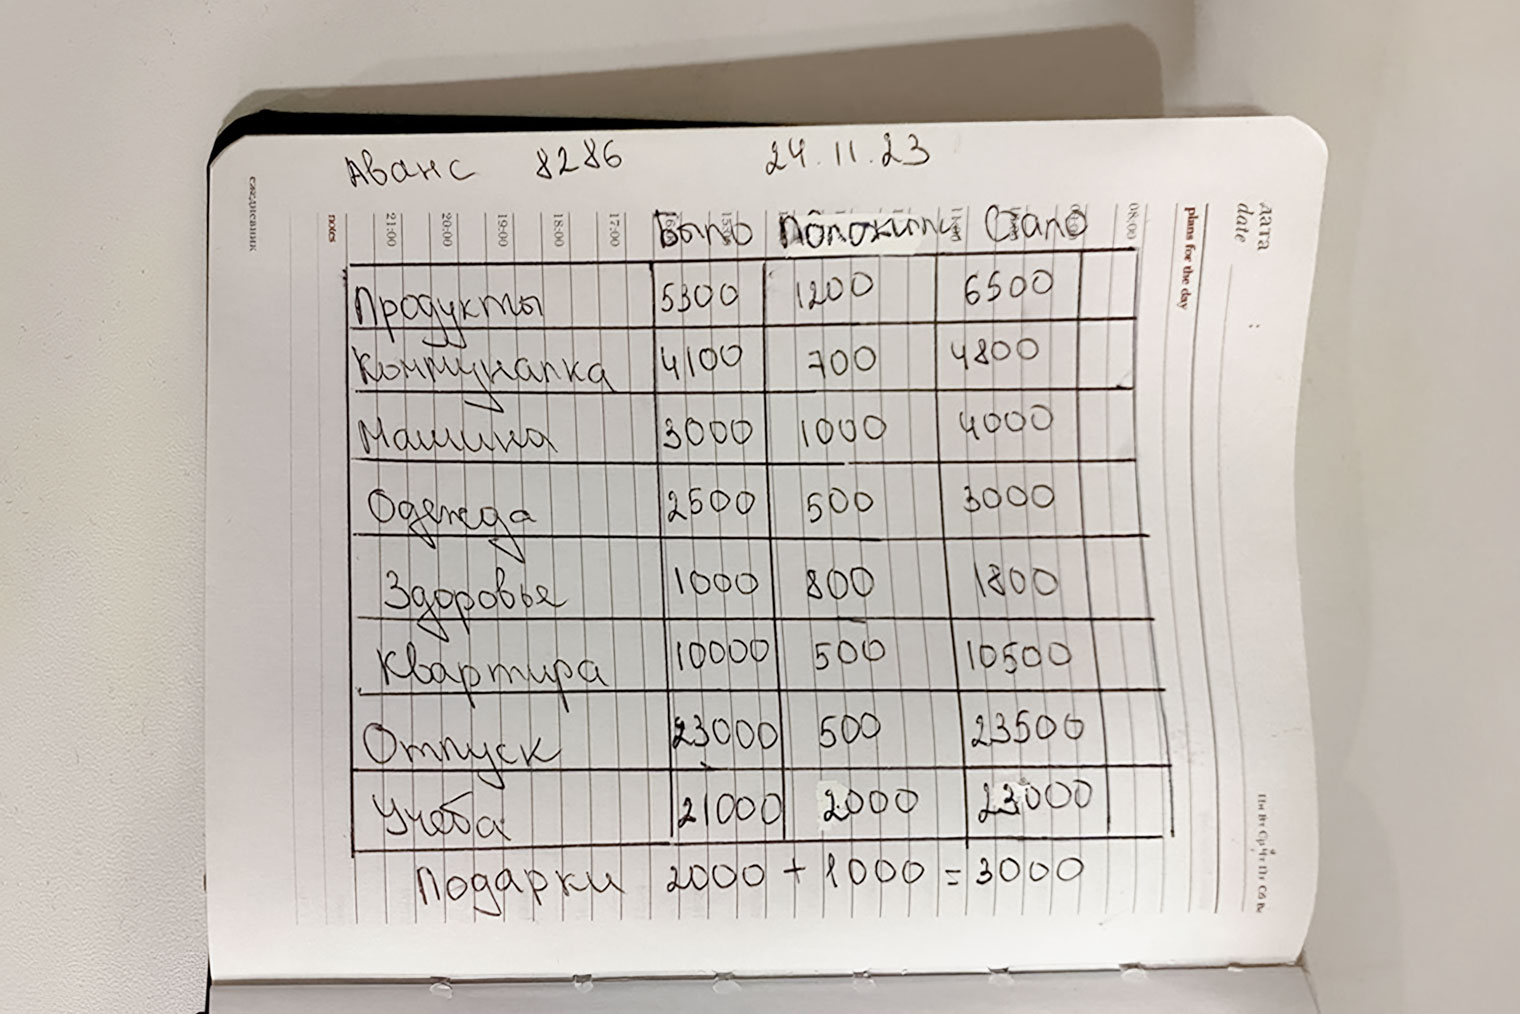 Аванс 8286 24.11.23
Было Положить Стало
Продукты 5300 1200 6500
Коммуналка 4100 700 4800
Машина 3000 1000 4000
Одежда 2500 500 3000
Здоровье 1000 800 1800
Квартира 10000 500 10500
Отпуск 23000 500 23500
Учеба 21000 2000 23000
Подарки 2000 + 1000 = 3000
ежедневник
notes
21:00
20:00
19:00
18:00
17:00
08:00
plans for the day
дата
date
Пн Вт Ср Чт Пт Сб Вс